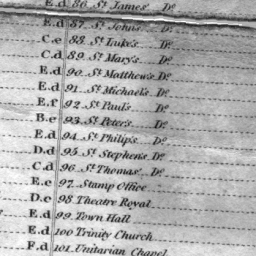 E.d 86. St. James' Do.
E.d 87. St. John's Do.
C.e 88. St. Luke's Do.
C.d 89. St. Mary's Do.
E.d 90. St. Matthew's Do.
E.d 91. St. Michael's Do.
E.f 92. St. Paul's Do.
B.e 93. St. Peter's Do.
E.d 94. St. Philip's Do.
D.d 95. St. Stephen's Do.
C.d 96. St. Thomas' Do.
E.e 97. Stamp Office
D.e 98. Theatre Royal
E.d 99. Town Hall
E.d 100 Trinity Church
F.d 101. Unitarian Chapel